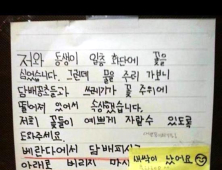 저와 동생이 일층 화단에 꽃을
심었습니다. 그런데 물을 주러 가보니
담배꽁초들과 쓰레기가 꽃 주위에
떨어져 있어서 속상했습니다.
저희 꽃들이 예쁘게 자랄수 있도록
도와주세요.
베란다에서 담배피시고
아래로 버리지 마시
새싹이 났어요